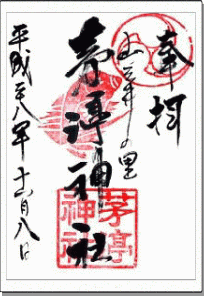 奉拝
の里
茅渟神社
平成 八年十一月八日
茅渟
神社